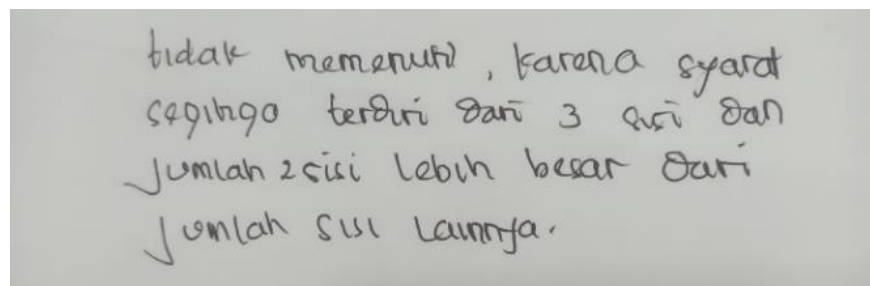 tidak memenuhi, karena syarat
segitiga terdiri dari 3 sisi dan
jumlah 2 sisi lebih besar dari
jumlah sisi lainnya.